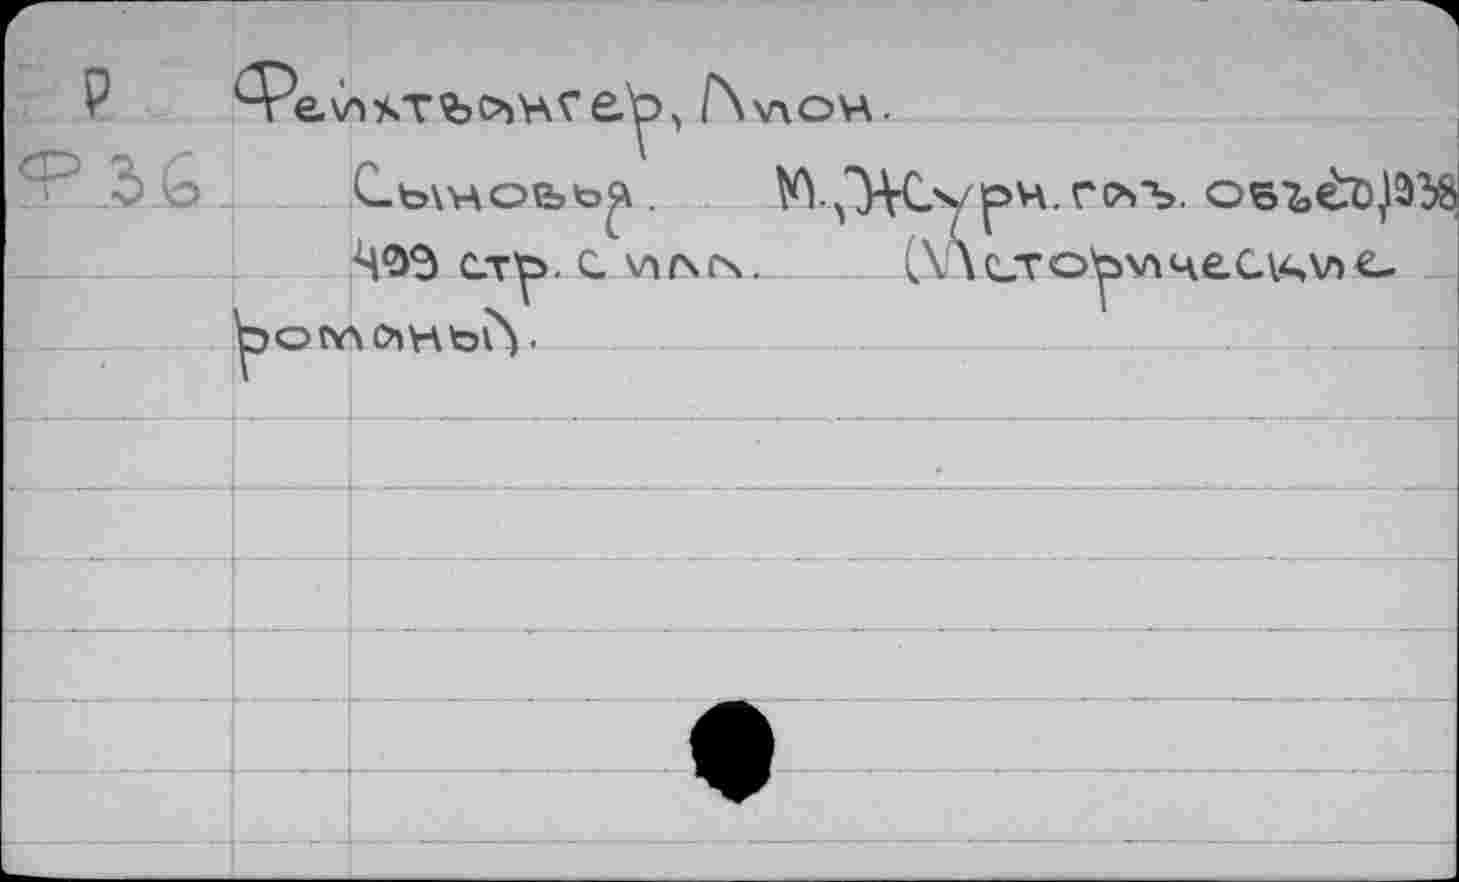 Р Фейхтвангер, Лион.
Ф 36 Сыновья. М., Журн.газ. объед, 1938
493 стр. с илл. (Исторические
романы).